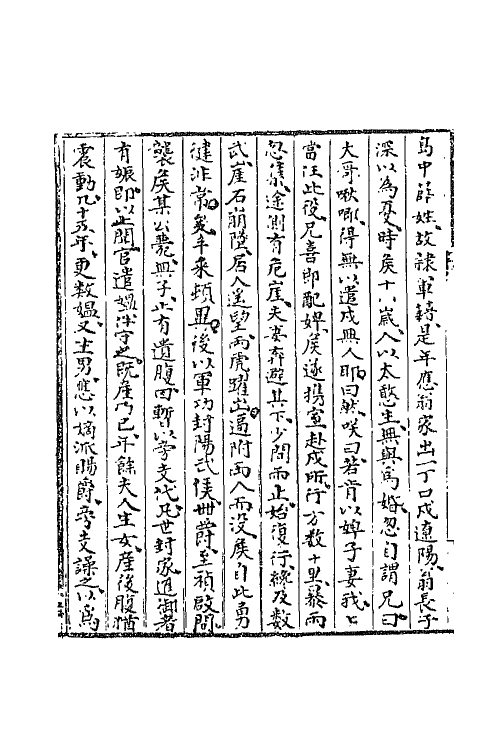 島中薛姓故隸軍籍是年應翁家出一丁口戍遼陽翁長子
深以為憂時矦十八歲人以太憨生無與為婚忽自謂兄曰
大哥啾唧得無以遣戍無人耶曰然咲曰若肯以婢子妻我〻
當任此役兄喜即配婢矦遂攜室赴戍所行方數十里暴雨
忽集途側有危崖夫妻奔避其下少間雨止始復行纔及數
武崖石崩墜居人遙望兩虎躍出逼附兩人而沒矦自此勇
健非常丰采頓異後以軍功封陽武侯世爵至禎啟間
襲矦某公薨無子止有遺腹因暫以旁支代凡世封家進御者
有娠即以上聞官遣媼伴守之既產乃已年餘夫人生女產後腹猶
震動凡十五年更數媼又生男應以嫡派賜爵旁支譟之以為